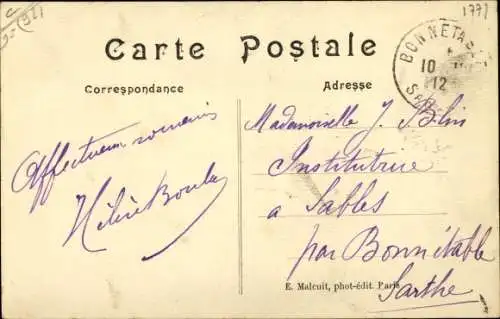 1771
(92)
Carte Postale
Correspondance
Adresse
BONNÉTABLE
10
12
Affectueux souvenirs
Mademoiselle J. Blin
Institutrice
à Sables
par Bonnétable
Sarthe
E. Malcuit, phot-édit. Paris